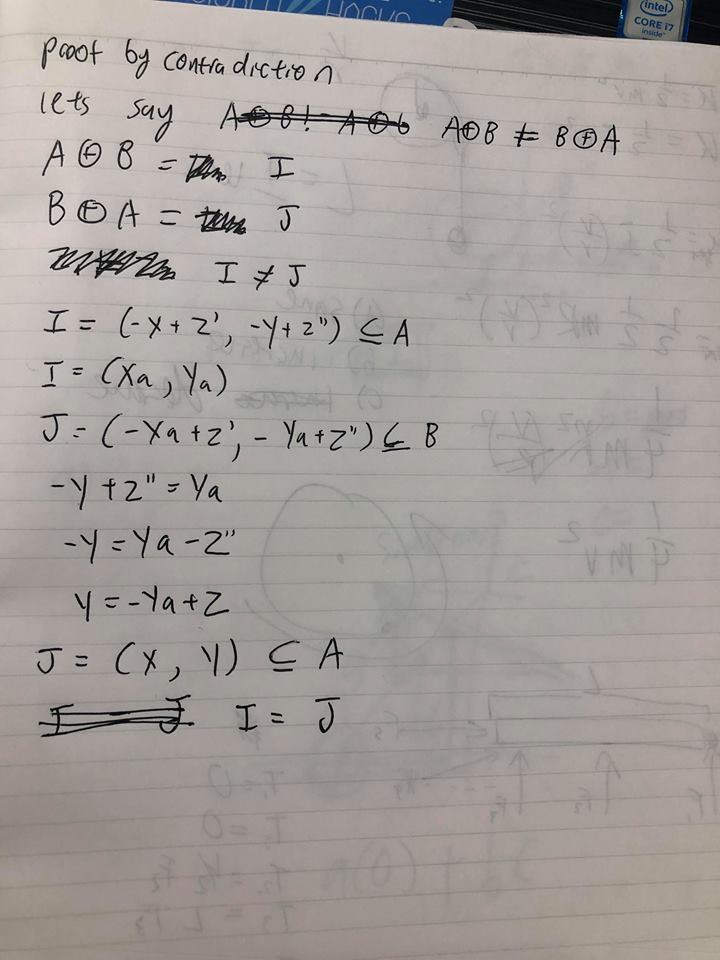 HOCUS
intel
CORE i7
inside
proof by contradiction
lets say A⊕B ≠ B⊕A
A⊕B = I
B⊕A = J
I ≠ J
I = (-x+z', -y+z") ⊆ A
I = (xa, ya)
J = (-xa+z', -ya+z") ⊆ B
-y+z" = ya
-y = ya-z"
y = -ya+z
J = (x, y) ⊆ A
I = J